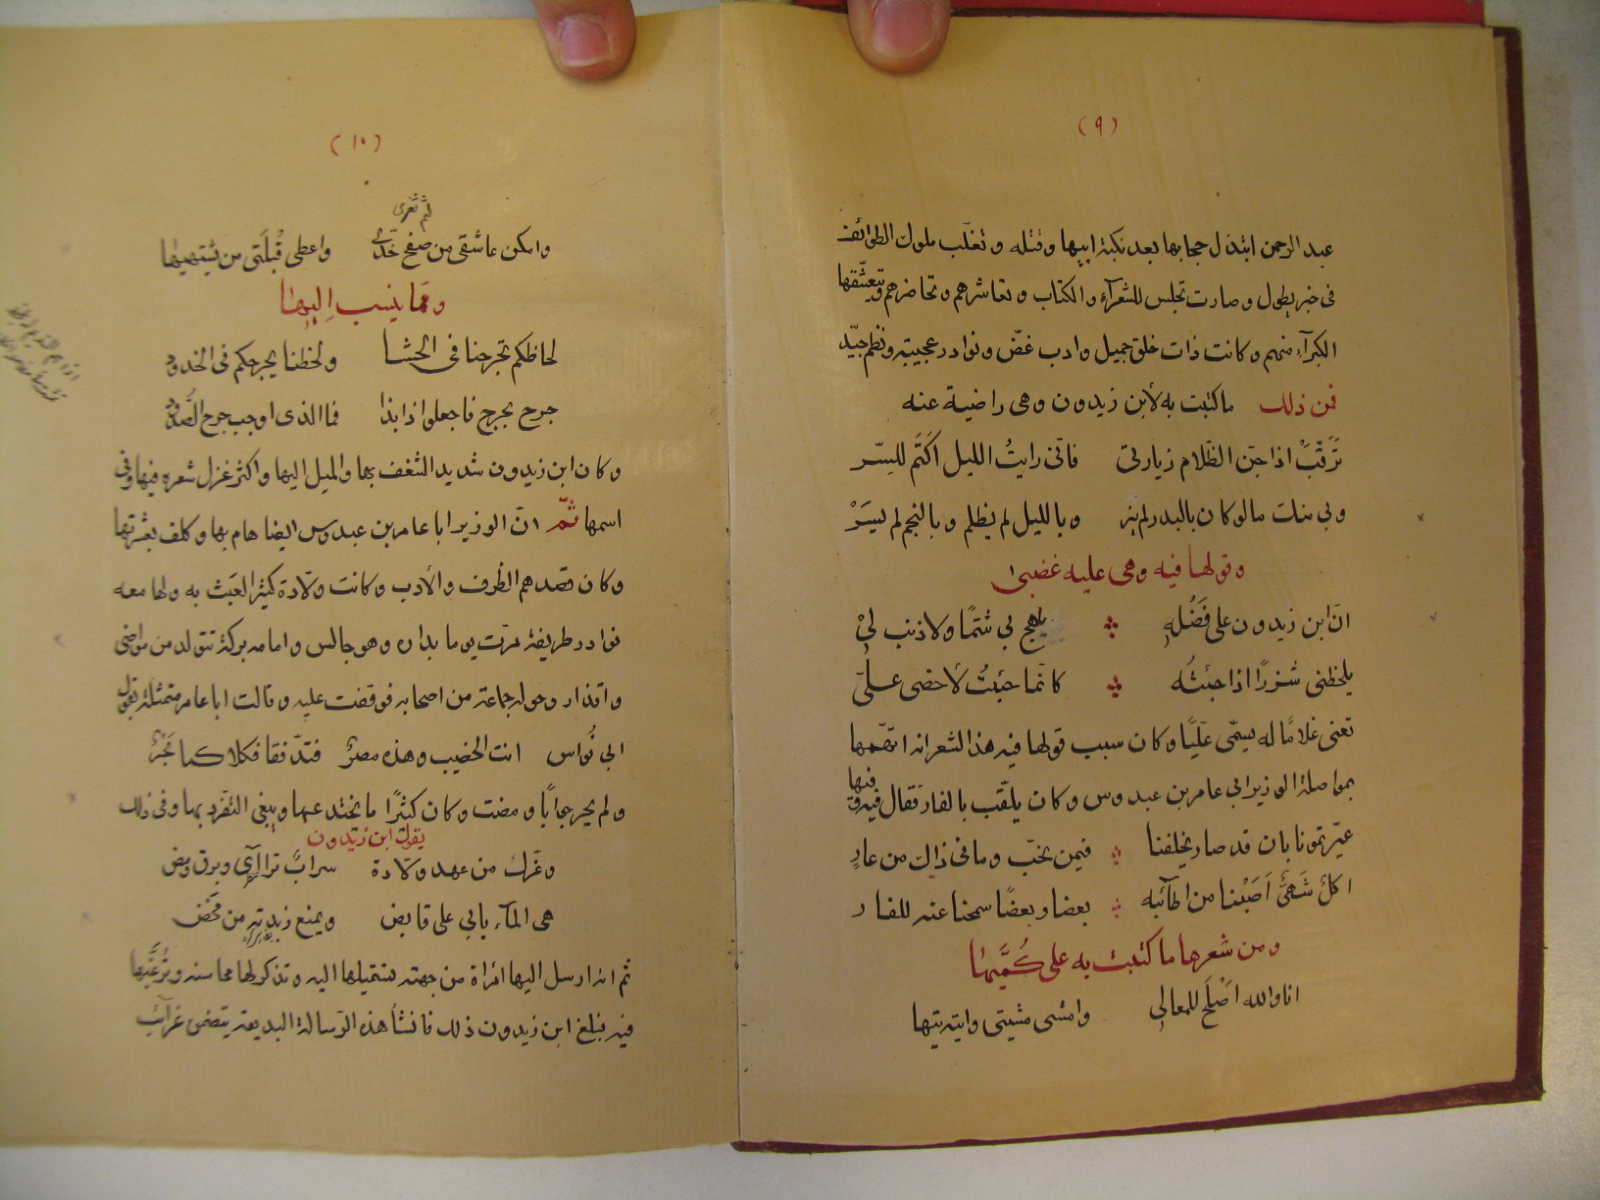 (٩)
عبد الرحمن ابتذل حجابها بعد نكبة ابيها وقتله وتغلب ملوك الطوائف
فى خبر يطول وصارت تجلس للشعرآء والكتاب وتعاشرهم وتحاضرهم ويتعشّقها
الكبرآء منهم وكانت ذات خلق جميل وادب غضّ ونوادر عجيبة ونظم جيّد
فمن ذلك ما كتبت به لأبن زيدون وهى راضية عنه
تَرَقّبْ اذا جنّ الظّلام زيارتى فانّى رايتُ الليل اكتَم للسّر
وبى منك ما لو كان بالبدر لم ينر وبالليل لم يظلم وبالنجم لم يسَرْ
وقولها فيه وهى عليه غضبى
انّ ابن زيدون على فَضْلِهِ يلهج بى شتمًا ولا ذنب لىْ
يلحظنى شزرًا اذا جئتُه كانّما جئتُ لأخصى علىّ
تعنى غلامًا له يسمّى عليًّا وكان سبب قولها فيه هذا الشعر انه اتهمها
بمواصلة الوزير ابى عامر بن عبدوس وكان يلقّب بالفار فقال فيه و
فيها
عيّرتمونا بان قد صار يخلفنا فيمن نحبّ وما فى ذاك من عارِ
اكلٌ شَهىٌّ اَصَبْنا من اطآئبه بعضا وبعضًا سمحنا عنه للفار
ومن شعرها ما كتبت به على كُمَّيها
انا والله اَصْلَح للمعالى وامشى مشيتى واتيه تيها
(١٠)
لثم ثغرى
وامكن عاشقى من صفح خدّى واعطى قُبْلَتى من يشتهيها
وممّا ينسب اِليها
لحاظكم تجرحنا فى الحشا ولحظنا يجرحكم فى الخدود
جرح بجرح فاجعلوا ذا بذا فما الذى اوجب جرح الصُّدود
وكان ابن زيدون شديد الشغف بها والميل اليها واكثر غزل شعره فيها وفى
اسمها ثمّ انّ الوزير ابا عامر بن عبدوس ايضا هام بها وكلف بعشرتها
وكان قصدهم الظرف والأدب وكانت ولّادة كثيرَ العَبَث به ولها معه
نوادر ظريفة مرّت يوما بداره وهو جالس وامامه بركة تتولد من مراضى
واقذار وحوله جماعة من اصحابه فوقفت عليه وقالت ابا عامر متمثلة بقول
ابى نُواس انت الخصيب وهذه مصرُ فتدفّقا فكلاكما بَحْرُ
ولم يحر جوابًا ومضت وكان كثيرًا ما يخدعها ويبغى التفرّد بها وفى ذلك
يقول ابن زيدون
وغرّك من عهد ولّادة سرابٌ تراآى وبرق ومض
هى المآء يابى على قابض ويمنع زبدته من مخض
ثم انه ارسل اليها امرأة من جهته تستميلها اليه وتذكر لها محاسنه وتُرغّبها
فيه فبلغ ابن زيدون ذلك فانشأ هذه الرّسالة البديعة يتضمن غرآئب